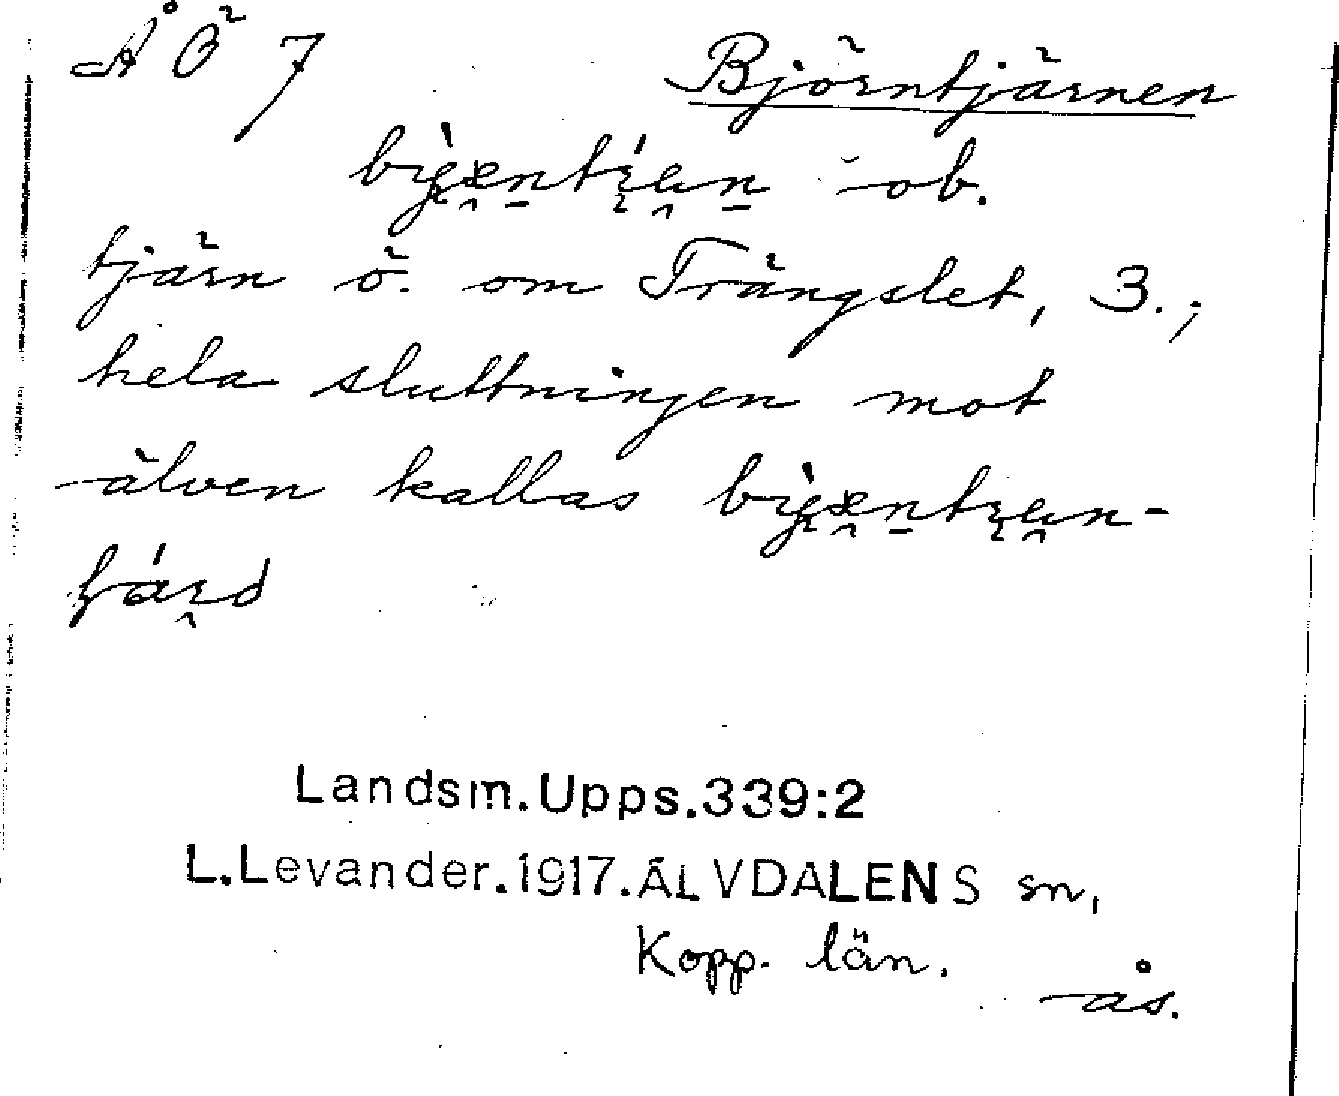 ÅÖ 7
Björntjärnen
ob.
tjärn ö. om Trängslet, 3.;
hela sluttningen mot
älven kallas
Landsm.Upps.339:2
L.Levander.1917.ÄLVDALENS sn,
Kopp. län.
ås.